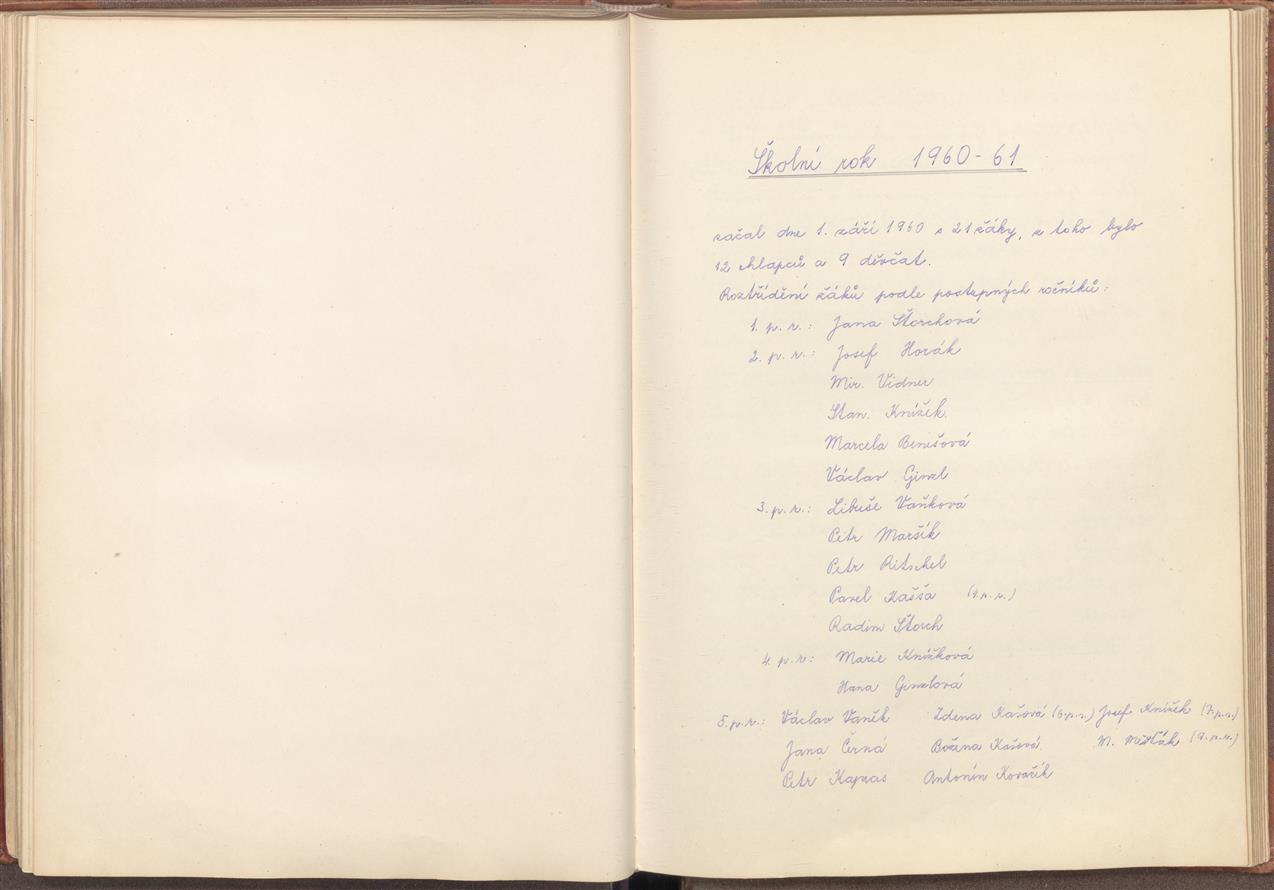 Školní rok 1960-61
začal dne 1. září 1960 s 21 žáky, z toho bylo
12 chlapců a 9 děvčat.
Roztřídění žáků podle postupných ročníků:
1. p. r.: Jana Štorchová
2. p. r.: Josef Horák
Mir. Vidner
Stan. Knížek
Marcela Benešová
Václav Ginzl
3. p. r.: Libuše Vaňková
Petr Maršík
Petr Ritschel
Pavel Kašša
Radim Štorch
4. p. r.: Marie Knížková
Hana Ginzlová
5. p. r.: Václav Vaněk Zdena Kašová (6. p. r.) Josef Knížek (7. p. r.)
Jana Černá Božena Kašová M.
Petr Kapras Antonín Kovařík